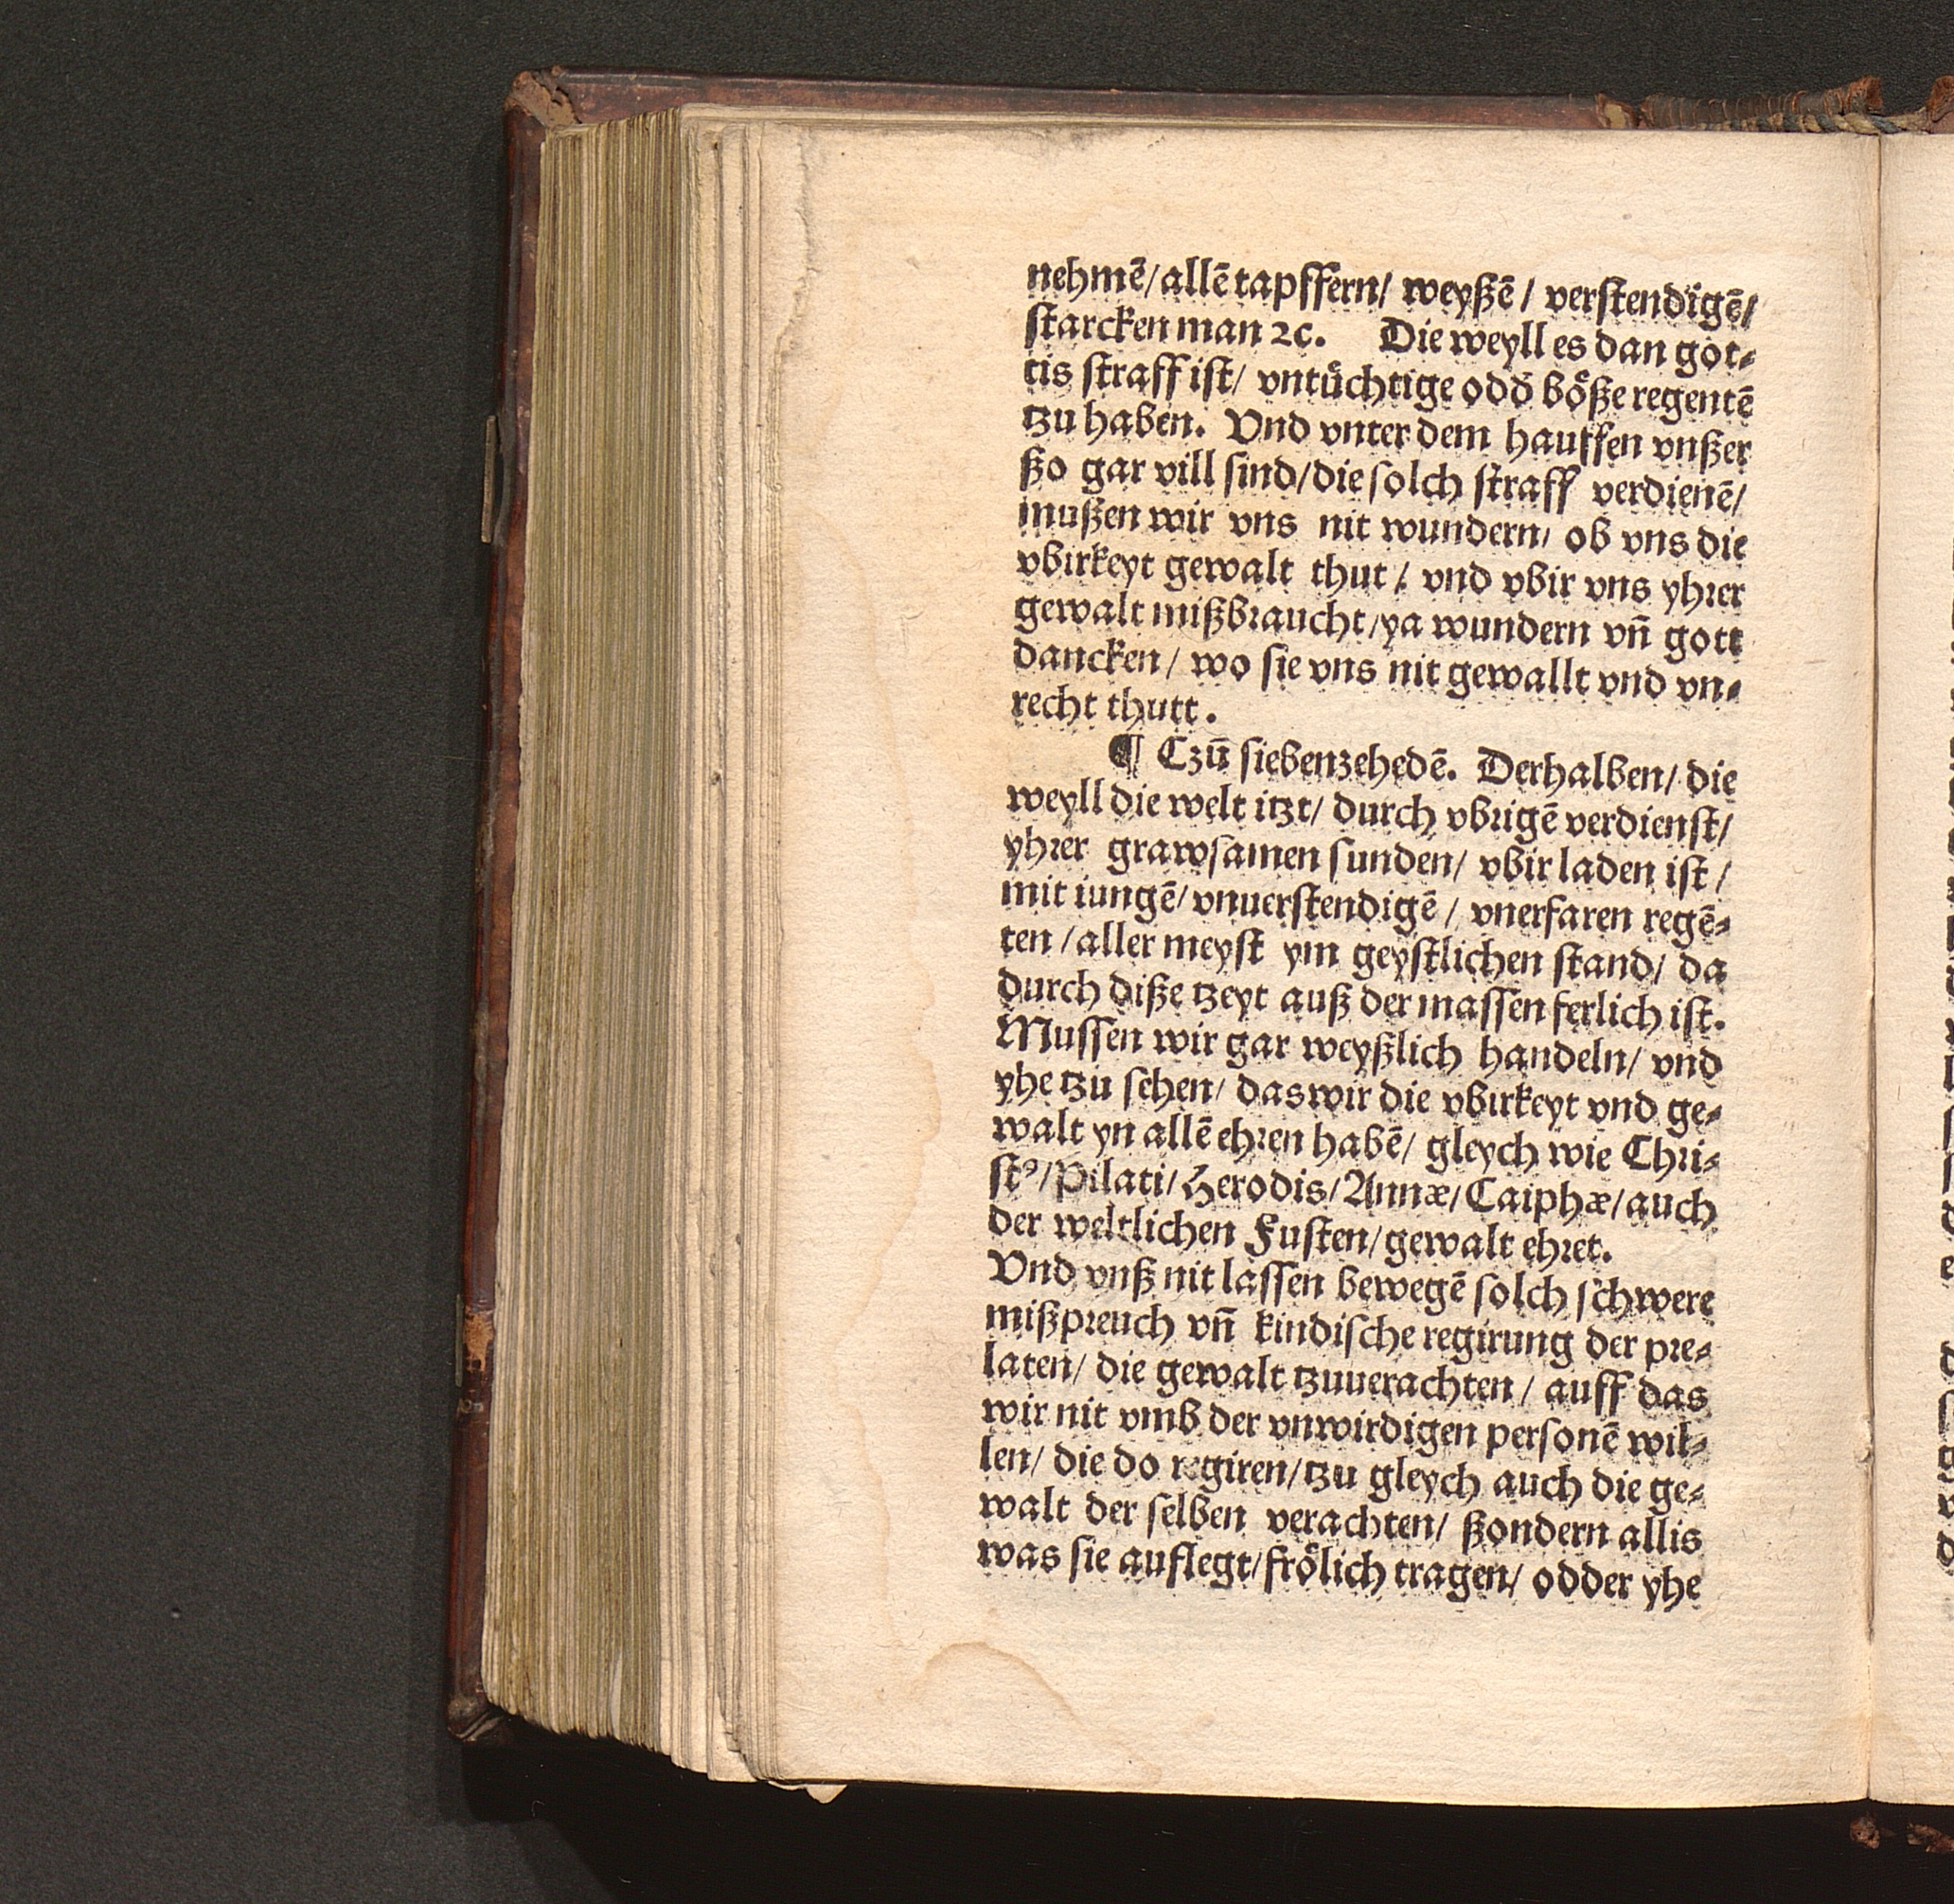 nehmē/ allē tapffern/ weyßē / verstendigē/
starcken man ꝛc. Die weyll es dan got⸗
tis straff ist/ vntuͤchtige odď boͤße regentē
tzu haben. Vnd vnter dem hauffen vnßer
ßo gar vill sind/ die solch straff verdienē/
mußen wir vns nit wundern/ ob vns die
vbirkeyt gewalt thut / vnd vbir vns yhrer
gewalt mißbraucht/ ya wundern vn̄ gott
dancken/ wo sie vns nit gewallt vnd vn⸗
recht thutt.
¶ Czū siebenzehedē. Derhalben/ die
weyll die welt itzt/ durch vbrigē verdienst/
yhrer grawsamen sunden/ vbir laden ist /
mit iungē/ vnuerstendigē / vnerfaren regē⸗
ten / aller meyst ym geystlichen stand/ da
durch diße tzeyt auß der massen ferlich ist.
Mussen wir gar weyßlich handeln/ vnd
yhe tzu sehen/ das wir die vbirkeyt vnd ge⸗
walt yn allē ehren habē/ gleych wie Chri⸗
stꝰ/ Pilati/ Herodis/ Annæ/ Caiphæ/ auch
der weltlichen Fusten/ gewalt ehret.
Vnd vnß nit lassen bewegē solch schwere
mißpreuch vn̄ kindische regirung der pre⸗
laten/ die gewalt tzuuerachten / auff das
wir nit vmb der vnwirdigen personē wil⸗
len/ die do regiren/ tzu gleych auch die ge⸗
walt der selben verachten/ ßondern allis
was sie auflegt/ froͤlich tragen/ odder yhe